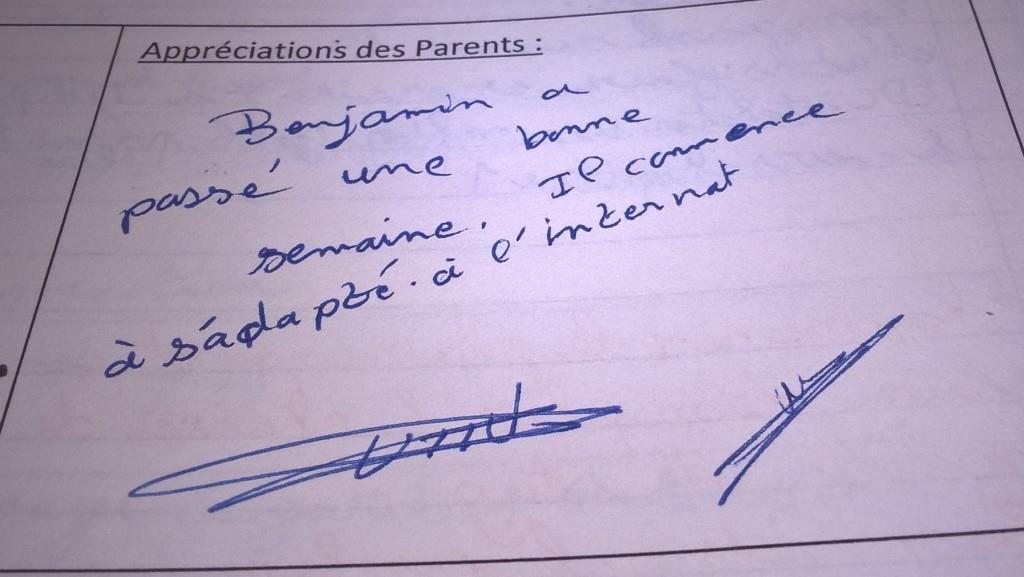 Appréciations des Parents :
Benjamin a
passé une bonne
semaine. Il commence
à s'adapté. à l'internat